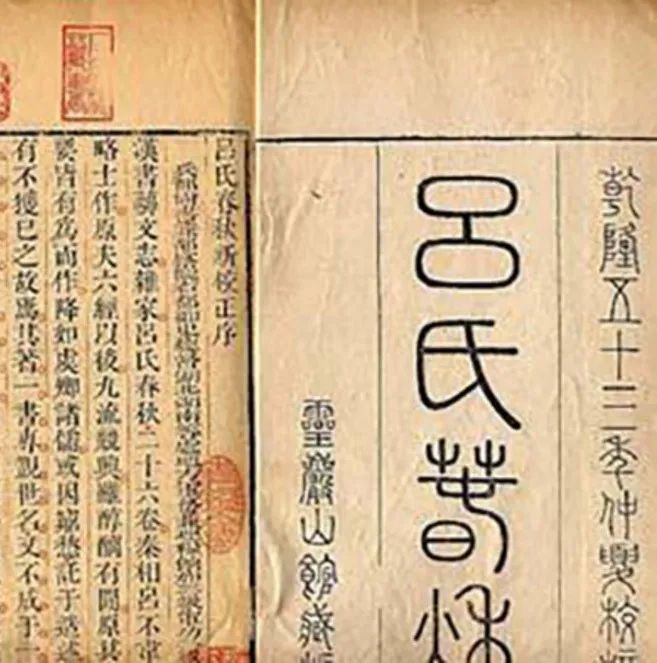 乾隆五十三年仲夏校
呂氏春秋
靈巖山館藏
呂氏春秋新校正序
漢書蓺文志雜家呂氏春秋二十六卷秦相呂不韋
略士作原夫六經以後九流競興雖醇醨有間原其
要皆有爲而作降如虞卿諸儒或因窮愁託于造述
有不獲巳之故焉其著一書專覬世名又不成于一